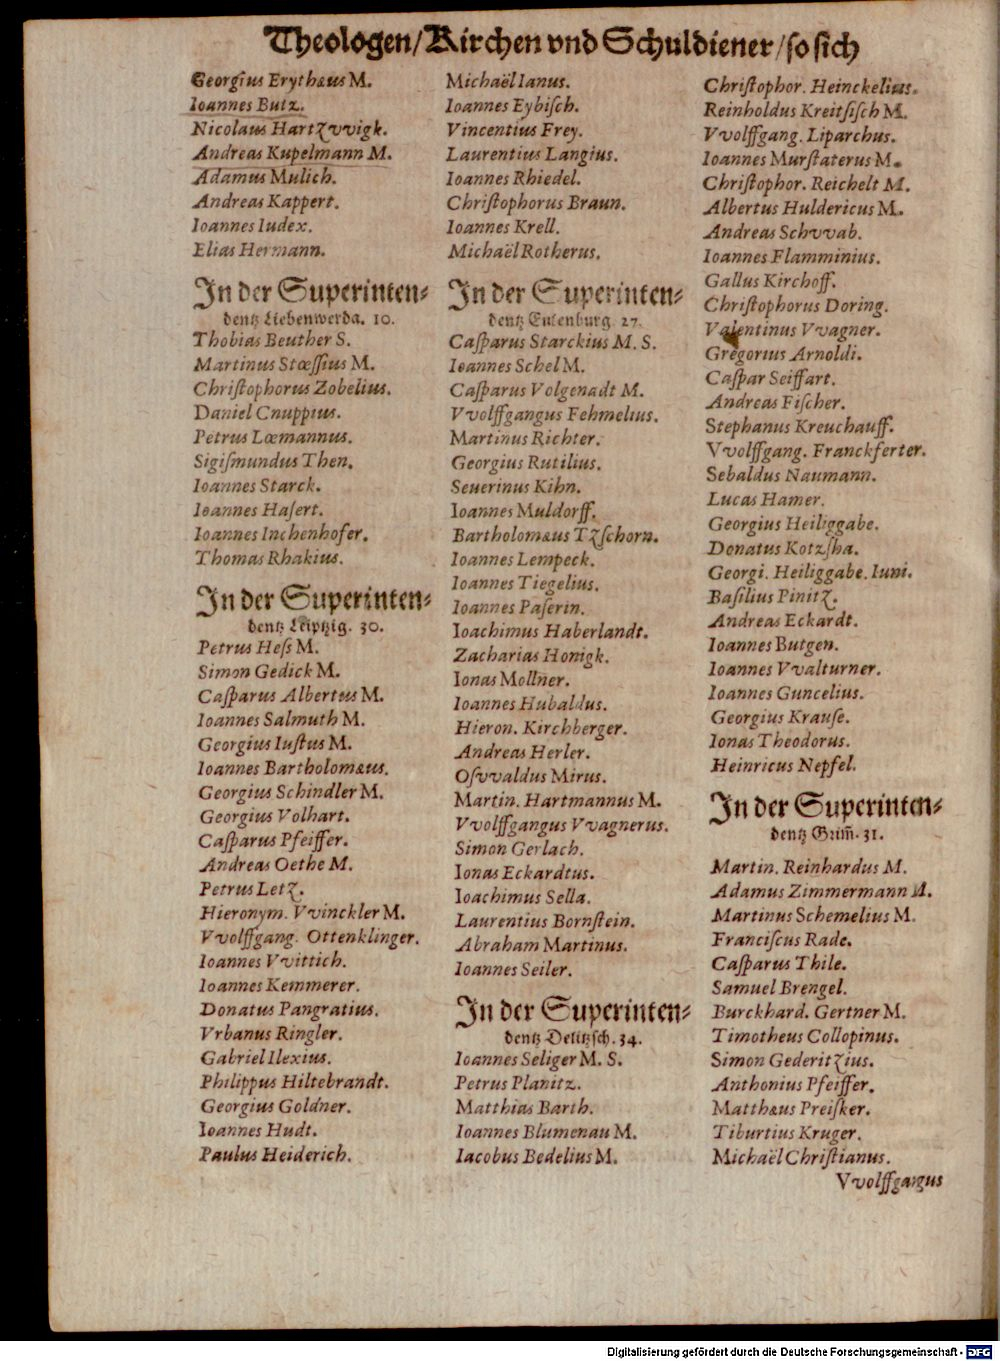 Theologen/Kirchen vnd Schuldiener/so sich
Georgius Erythæus M.
Ioannes Butz.
Nicolaus Hartzvvigk.
Andreas Kupelmann M.
Adamus Mulich.
Andreas Kappert.
Ioannes Iudex.
Elias Hermann.
In der Superinten⸗
dentz Liebenwerda. 10.
Thobias Beuther S.
Martinus Stœſſius M.
Chriſtophorus Zobelius.
Daniel Cnuppius.
Petrus Lœmannus.
Sigiſmundus Then.
Ioannes Starck.
Ioannes Haſert.
Ioannes Inchenhofer.
Thomas Rhakius.
In der Superinten⸗
dentz Leiptzig. 30.
Petrus Heſs M.
Simon Gedick M.
Caſparus Albertus M.
Ioannes Salmuth M.
Georgius Iuſtus M.
Ioannes Bartholomæus.
Georgius Schindler M.
Georgius Volhart.
Caſparus Pfeiffer.
Andreas Oethe M.
Petrus Letz.
Hieronym. Vvinckler M.
Vvolffgang. Ottenklinger.
Ioannes Vvittich.
Ioannes Kemmerer.
Donatus Pangratius.
Vrbanus Ringler.
Gabriel Ilexius.
Philippus Hiltebrandt.
Georgius Goldner.
Ioannes Hudt.
Paulus Heiderich.
Michaël Ianus.
Ioannes Eybiſch.
Vincentius Frey.
Laurentius Langius.
Ioannes Rhiedel.
Chriſtophorus Braun.
Ioannes Krell.
Michaël Rotherus.
In der Superinten⸗
dentz Eulenburg. 27.
Caſparus Starckius M. S.
Ioannes Schel M.
Caſparus Volgenadt M.
Vvolffgangus Fehmelius.
Martinus Richter.
Georgius Rutilius.
Seuerinus Kihn.
Ioannes Muldorff.
Bartholomæus Tzſchorn.
Ioannes Lempeck.
Ioannes Tiegelius.
Ioannes Paſerin.
Ioachimus Haberlandt.
Zacharias Honigk.
Ionas Mollner.
Ioannes Hubaldus.
Hieron. Kirchberger.
Andreas Herler.
Oſvvaldus Mirus.
Martin. Hartmannus M.
Vvolffgangus Vvagnerus.
Simon Gerlach.
Ionas Eckardtus.
Ioachimus Sella.
Laurentius Bornſtein.
Abraham Martinus.
Ioannes Seiler.
In der Superinten⸗
dentz Delitzſch. 34.
Ioannes Seliger M. S.
Petrus Planitz.
Matthias Barth.
Ioannes Blumenau M.
Iacobus Bedelius M.
Chriſtophor. Heinckelius.
Reinholdus Kreitſiſch M.
Vvolffgang. Liparchus.
Ioannes Murſtaterus M.
Chriſtophor. Reichelt M.
Albertus Huldericus M.
Andreas Schvvab.
Ioannes Flamminius.
Gallus Kirchoff.
Chriſtophorus Doring.
Valentinus Vvagner.
Gregorius Arnoldi.
Caſpar Seiffart.
Andreas Fiſcher.
Stephanus Kreuchauff.
Vvolffgang. Franckferter.
Sebaldus Naumann.
Lucas Hamer.
Georgius Heiliggabe.
Donatus Kotzſha.
Georgi. Heiliggabe. Iuni.
Baſilius Pinitz.
Andreas Eckardt.
Ioannes Butgen.
Ioannes Vvalturner.
Ioannes Guncelius.
Georgius Krauſe.
Ionas Theodorus.
Heinricus Nepfel.
In der Superinten⸗
dentz Grim̃. 31.
Martin. Reinhardus M.
Adamus Zimmermann M.
Martinus Schemelius M.
Franciſcus Rade.
Caſparus Thile.
Samuel Brengel.
Burckhard. Gertner M.
Timotheus Collopinus.
Simon Gederitzius.
Anthonius Pfeiffer.
Matthæus Preiſker.
Tiburtius Kruger.
Michaël Chriſtianus.
Vvolffgangus
Digitalisierung gefördert durch die Deutsche Forschungsgemeinschaft - DFG